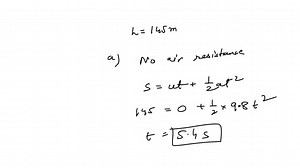 h = 145 m
a) No air resistance
s = ut + 1/2 at²
145 = 0 + 1/2 × 9.8 t²
t = 5.4 s